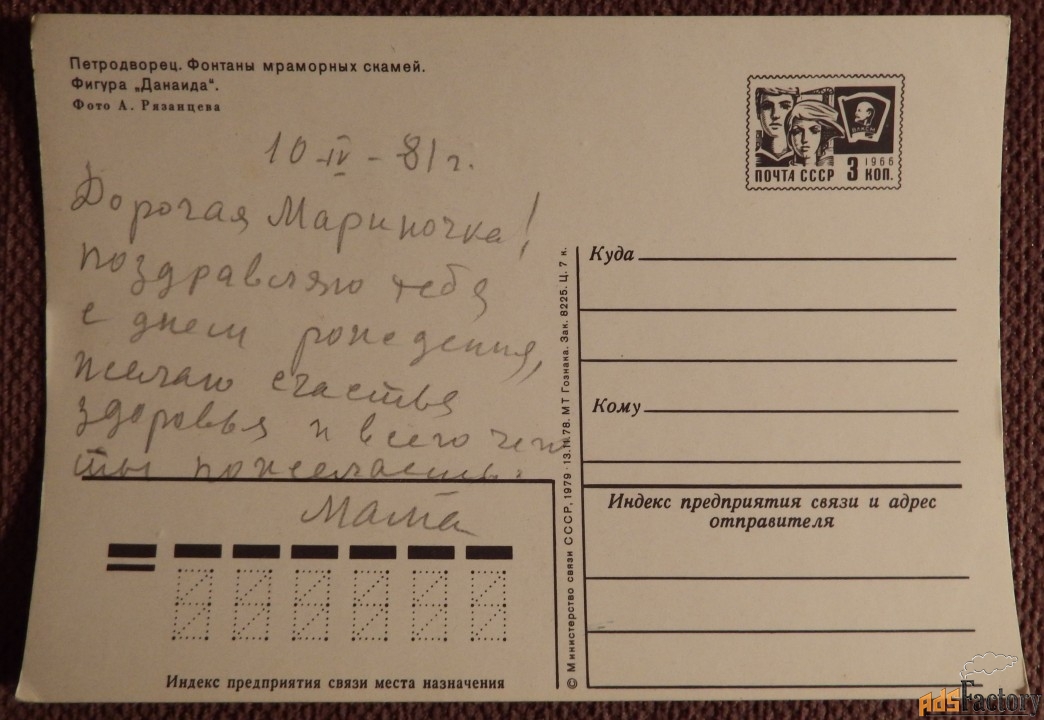 Петродворец. Фонтаны мраморных скамей.
Фигура „Данаида“.
Фото А. Рязанцева
10 IV - 81 г.
Дорогая Мариночка!
поздравляю тебя
с днем рождения,
желаю счастья
здоровья и всего чего
ты пожелаешь.
Мама
ВЛКСМ
1966
ПОЧТА СССР 3 КОП.
Куда
Кому
Индекс предприятия связи и адрес
отправителя
© Министерство связи СССР, 1979 · 13.11.78. МТ Гознака. Зак. 8225. Ц. 7 к.
Индекс предприятия связи места назначения
AdsFactory